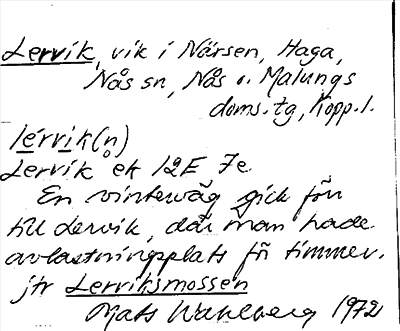 Lervik, vik i Närsen, Haga,
Nås sn, Nås o. Malungs
doms.tg, Kopp.l.
lérvik(n)
Lervik ek 12E 7e
En vinterväg gick förr
till Lervik, där man hade
avlastningsplats fö timmer.
jfr Lerviksmossen
Mats Wahlberg 1972